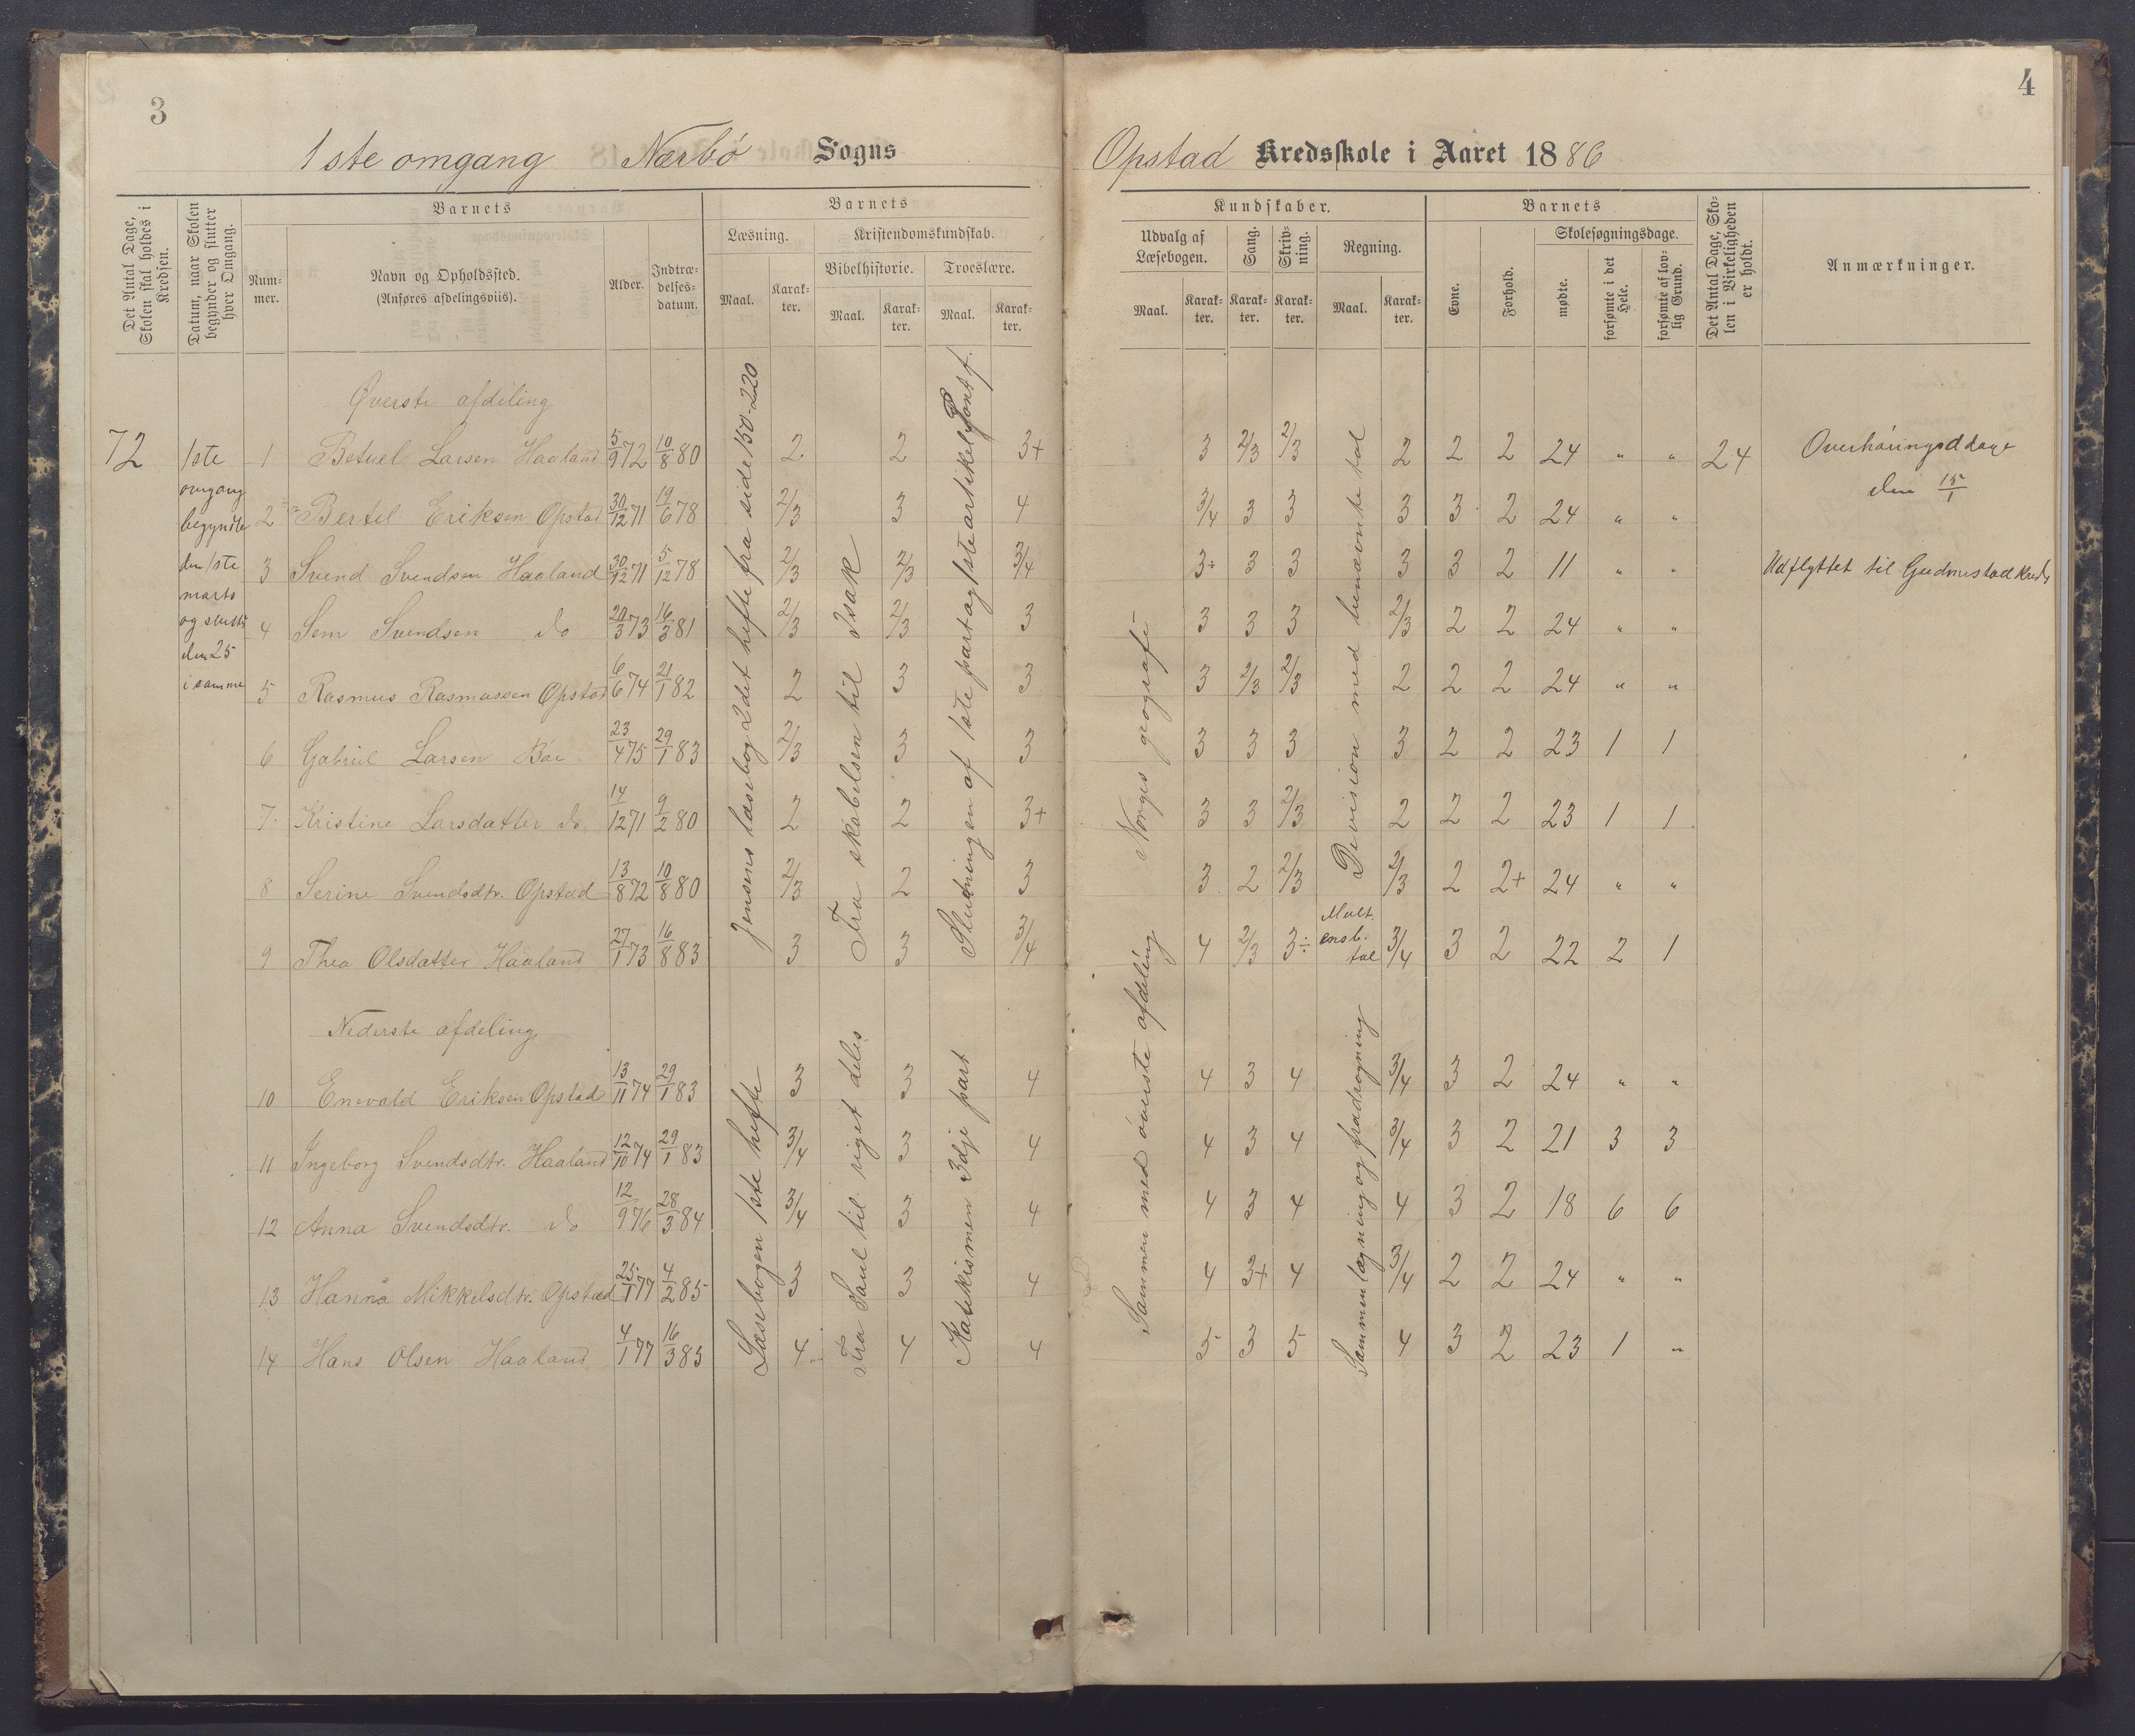 3
4
1ste omgang Nærbö Sogns
Opstad Kredsskole i Aaret 1886
Det Antal Dage, Skolen skal holdes i Kredsen.
Datum, naar Skolen begynder og slutter hver Omgang.
Barnets
Num-
mer.
Navn og Opholdssted.
(Anføres afdelingsviis).
Alder.
Indtræ-
delses-
datum.
Barnets
Læsning.
Maal.
Karak-
ter.
Kristendomskundskab.
Bibelhistorie.
Maal.
Karak-
ter.
Troeslære.
Maal.
Karak-
ter.
Kundskaber.
Udvalg af
Læsebogen.
Maal.
Karak-
ter.
Sang.
Karak-
ter.
Skriv-
ning.
Karak-
ter.
Regning.
Maal.
Karak-
ter.
Barnets
Evne.
Forhold.
Skolesøgningsdage.
mødte.
forsømte i det Hele.
forsømte af lov-
lig Grund.
Det Antal Dage, Sko-
len i Virkeligheden
er holdt.
Anmærkninger.
72
1ste
omgang
begyndte
den 1ste
marts
og slutte
den 25
i samme
Øverste afdeling
1 Betuel Larsen Haaland 5/9 72 10/8 80 2 2 3+ 3 2/3 2/3 2 2 2 24 " " 24 Overhöringsddage
den 15/1
2 Bertel Eriksen Opstad 30/12 71 19/6 78 2/3 3 4 3/4 3 3 3 3 2 24 " "
3 Svend Svendsen Haaland 30/12 71 5/12 78 2/3 2/3 3/4 3÷ 3 3 3 3 2 11 " " Udflyttet til Gudmestad Kreds
4 Sem Svendsen do 20/3 73 16/3 81 2/3 2/3 3 3 3 3 2/3 2 2 24 " "
5 Rasmus Rasmussen Opstad 6/6 74 21/1 82 2 3 3 3 2/3 2/3 2 2 2 24 " "
6 Gabriel Larsen Böe 23/4 75 29/1 83 2/3 3 3 3 3 3 3 2 2 23 1 1
7 Kristine Larsdatter do 14/12 71 9/2 80 2 2 3+ 3 3 2/3 2 2 2 23 1 1
8 Serine Svendsdtr. Opstad 13/8 72 10/8 80 2/3 2 3 3 2 2/3 2/3 2 2+ 24 " "
9 Thea Olsdatter Haaland 27/1 73 16/8 83 3 3 3/4 4 2/3 3÷ 3/4 3 2 22 2 1
Jensens læsebog 2det hefte fra side 150-220
Fra skabelsen til Isak
Slutningen af 1ste part og 1ste artikel
Norges geografi
Devision med benævnte tal
Mult.
ensb.
tal
Nederste afdeling
10 Enevald Eriksen Opstad 13/11 74 29/1 83 3 3 4 4 3 4 3/4 3 2 24 " "
11 Ingeborg Svendsdtr. Haaland 12/10 74 29/1 83 3/4 3 4 4 3 4 3/4 3 2 21 3 3
12 Anna Svendsdtr. do 12/9 76 28/3 84 3/4 3 4 4 3 4 4 3 2 18 6 6
13 Hanna Mikkelsdtr. Opstad 25/1 77 4/2 85 3 3 4 4 3+ 4 3/4 2 2 24 " "
14 Hans Olsen Haaland 4/1 77 16/3 85 4 4 4 5 3 5 4 3 2 23 1 "
Læsebogen 1ste hefte
Fra Saul til riget deles
Katekismen 3dje part
Sammen med överste afdeling
Sammenlægning og fradragning